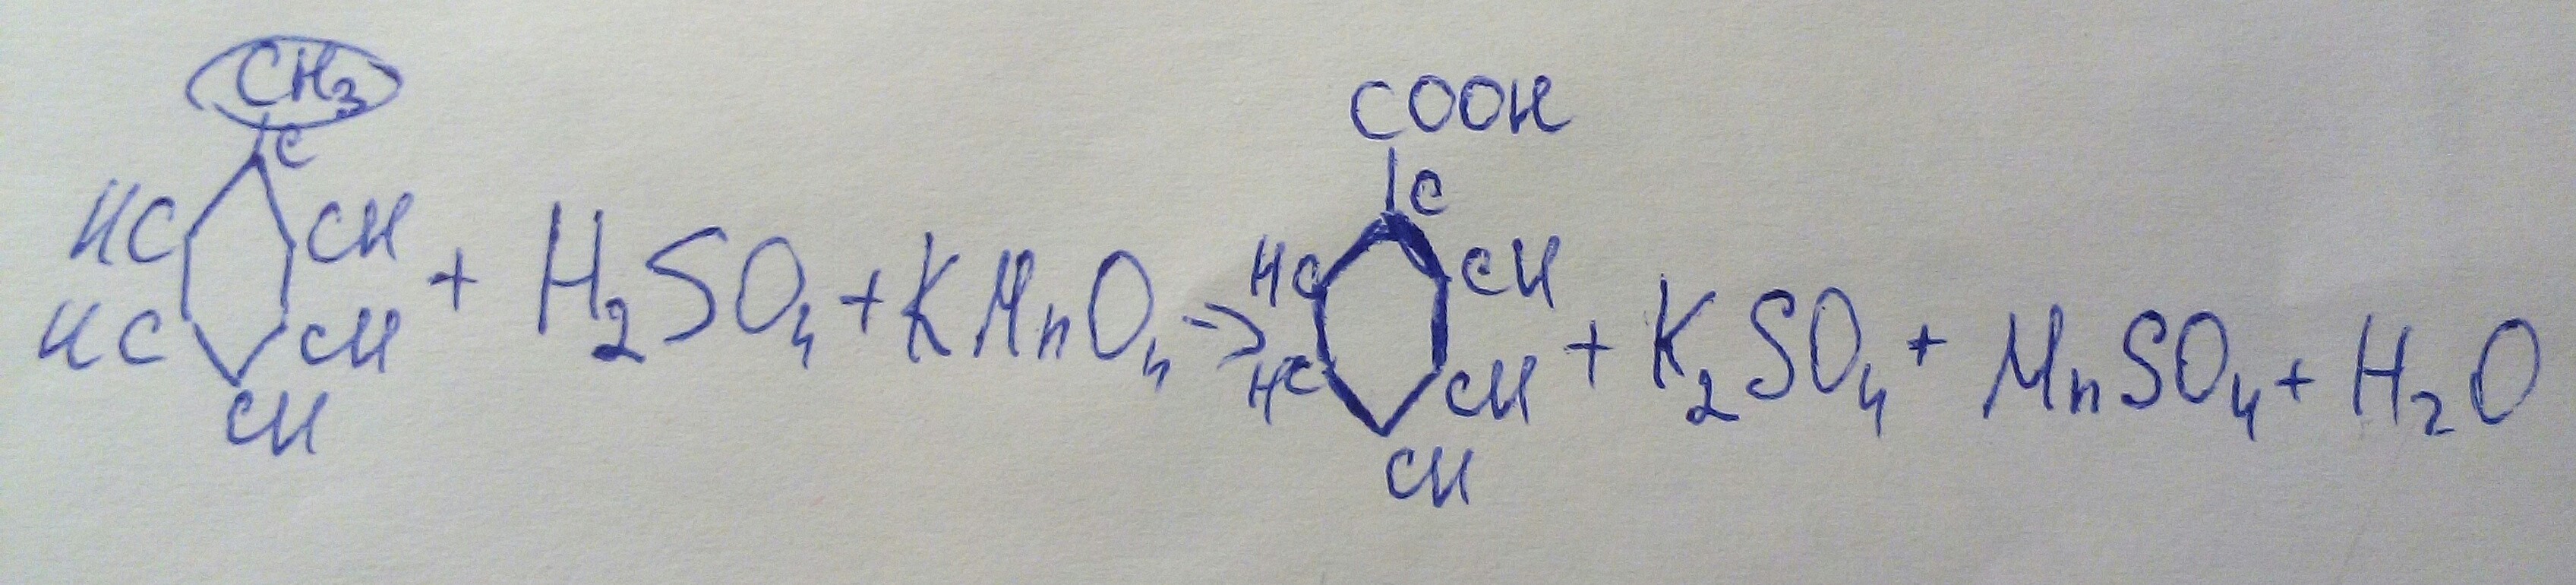 CH₃
C
HC CH
HC CH
CH
+ H₂SO₄ + KMnO₄ →
COOH
C
HC CH
HC CH
CH
+ K₂SO₄ + MnSO₄ + H₂O